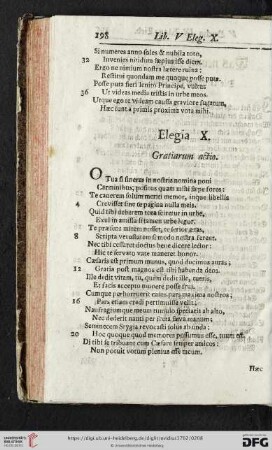 198 Lib. V Eleg. X.
Si numeres anno soles & nubila toto,
32 Invenies nitidum sæpius isse diem.
Ergo ne nimium nostra lætere ruina;
Restitui quondam me quoque posse puta.
Posse puta fieri lenito Principe, vultus
36 Ut videas media tristis in urbe meos.
Utque ego te videam causa graviore fugatum,
Hæc sunt a primis proxima vota mihi.
Elegia X.
Gratiarum actio.
O Tua si sineres in nostris nomina poni
Carminibus; positus quam mihi sæpe fores!
Te canerem solum meriti memor, inque libellis
4 Crevisset sine te pagina nulla meis.
Quid tibi deberem tota sciretur in urbe,
Exul in amissa si tamen urbe legor.
Te præsens mitem nosset, te serior ætas,
8 Scripta vetustatem si modo nostra ferent.
Nec tibi cessaret doctus bene dicere lector:
Hic te servato vate maneret honor.
Cæsaris est primum munus, quod ducimus auras;
12 Gratia post magnos est tibi habenda deos.
Ille dedit vitam, tu, quam dedit ille, tueris,
Et facis accepto munere posse frui.
Cumque perhorruerit casus pars maxima nostros;
16 Pars etiam credi pertimuisse velit;
Naufragiumque meum tumulo spectarit ab alto,
Nec dederit nanti per freta sæva manum;
Seminecem Stygia revocasti solus ab unda:
20 Hoc quoque quod memores possumus esse, tuum est.
Di tibi se tribuant cum Cæsare semper amicos:
Non potuit votum plenius esse meum.
Hæc
https://digi.ub.uni-heidelberg.de/diglit/ovidius1702/0208
© Universitätsbibliothek Heidelberg
UNIVERSITÄTS-BIBLIOTHEK HEIDELBERG
Gefördert durch die
DFG